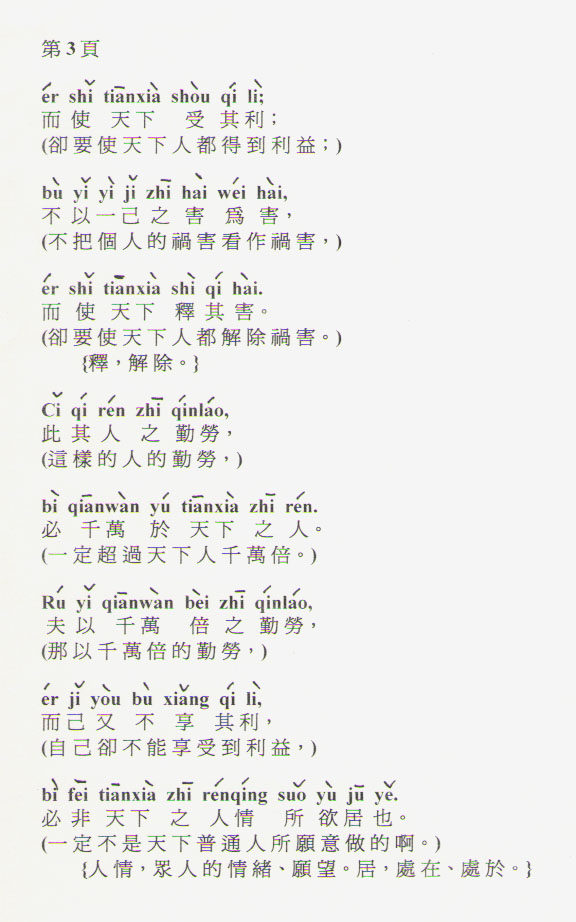 第 3 頁
ér shǐ tiānxià shòu qí lì;
而 使 天下 受 其利；
(卻要使天下人都得到利益；)
bù yǐ yì jǐ zhī hài wéi hài,
不 以 一 己 之 害 爲 害，
(不把個人的禍害看作禍害，)
ér shǐ tiānxià shì qí hài.
而 使 天下 釋 其 害。
(卻要使天下人都解除禍害。)
{釋，解除。}
Cǐ qí rén zhī qínláo,
此 其 人 之 勤勞，
(這樣的人的勤勞，)
bì qiānwàn yú tiānxià zhī rén.
必 千萬 於 天下 之 人。
(一定超過天下人千萬倍。)
Rú yǐ qiānwàn bèi zhī qínláo,
夫 以 千萬 倍 之 勤勞，
(那以千萬倍的勤勞，)
ér jǐ yòu bù xiǎng qí lì,
而己 又 不 享 其利，
(自己卻不能享受到利益，)
bì fēi tiānxià zhī rénqíng suǒ yù jū yě.
必 非 天下 之 人情 所 欲居 也。
(一定不是天下普通人所願意做的啊。)
{人情，眾人的情緒、願望。居，處在、處於。}